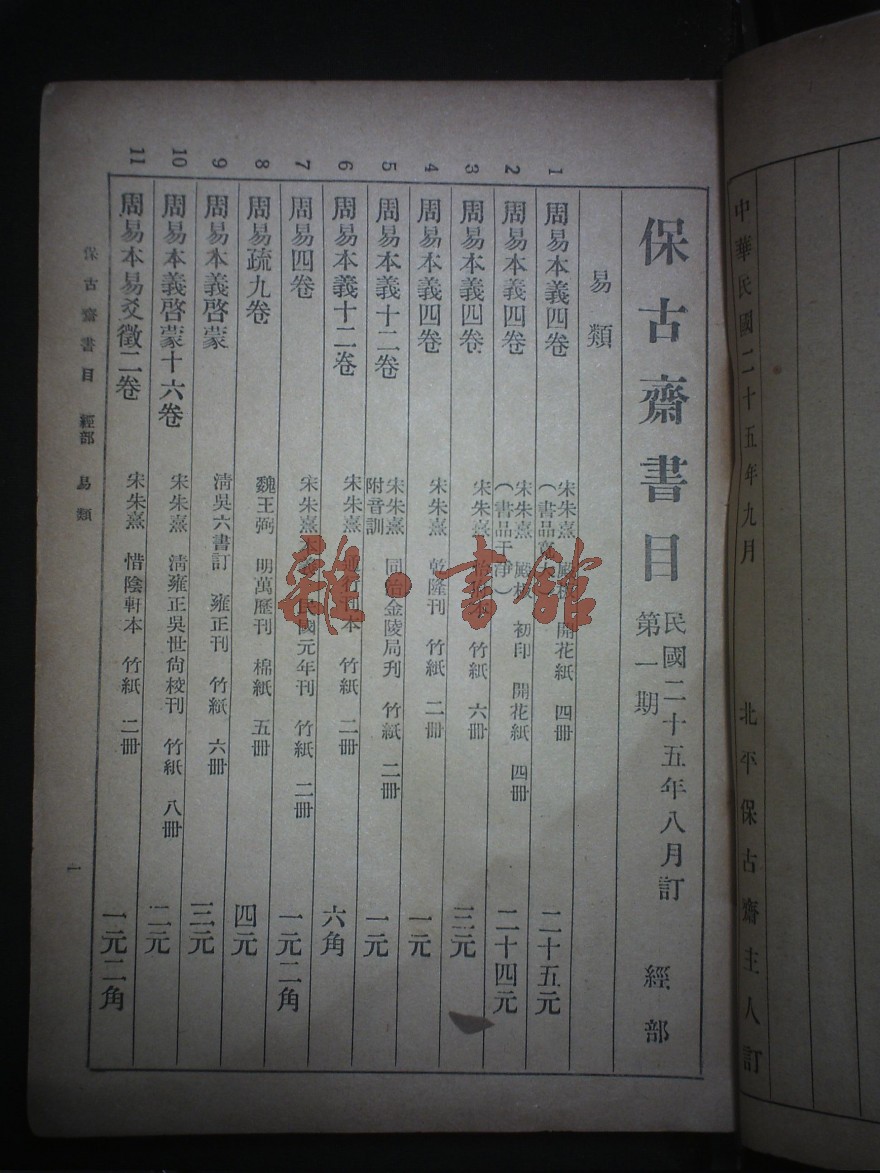 中華民國二十五年九月 北平保古齋主人訂
保古齋書目 民國二十五年八月訂 第一期 經部
易類
1 周易本義四卷 宋朱熹 殿板 開花紙 四冊 (書品 二十五元
2 周易本義四卷 宋朱熹 殿板 初印 開花紙 四冊 (書品干净) 二十四元
3 周易本義四卷 宋朱熹 竹紙 六冊 三元
4 周易本義四卷 宋朱熹 乾隆刊 竹紙 二冊 一元
5 周易本義十二卷 附音訓 宋朱熹 同治金陵局刋 竹紙 二冊 一元
6 周易本義十二卷 宋朱熹 本 竹紙 二冊 六角
7 周易四卷 宋朱熹 民國元年刊 竹紙 二冊 一元二角
8 周易疏九卷 魏王弼 明萬歷刊 棉紙 五冊 四元
9 周易本義啓蒙 清吳六書訂 雍正刊 竹紙 六冊 三元
10 周易本義啓蒙十六卷 宋朱熹 清雍正吳世尙校刊 竹紙 八冊 二元
11 周易本易爻徵二卷 宋朱熹 惜陰軒本 竹紙 二冊 一元二角
保古齋書目 經部 易類 一
雜·書館